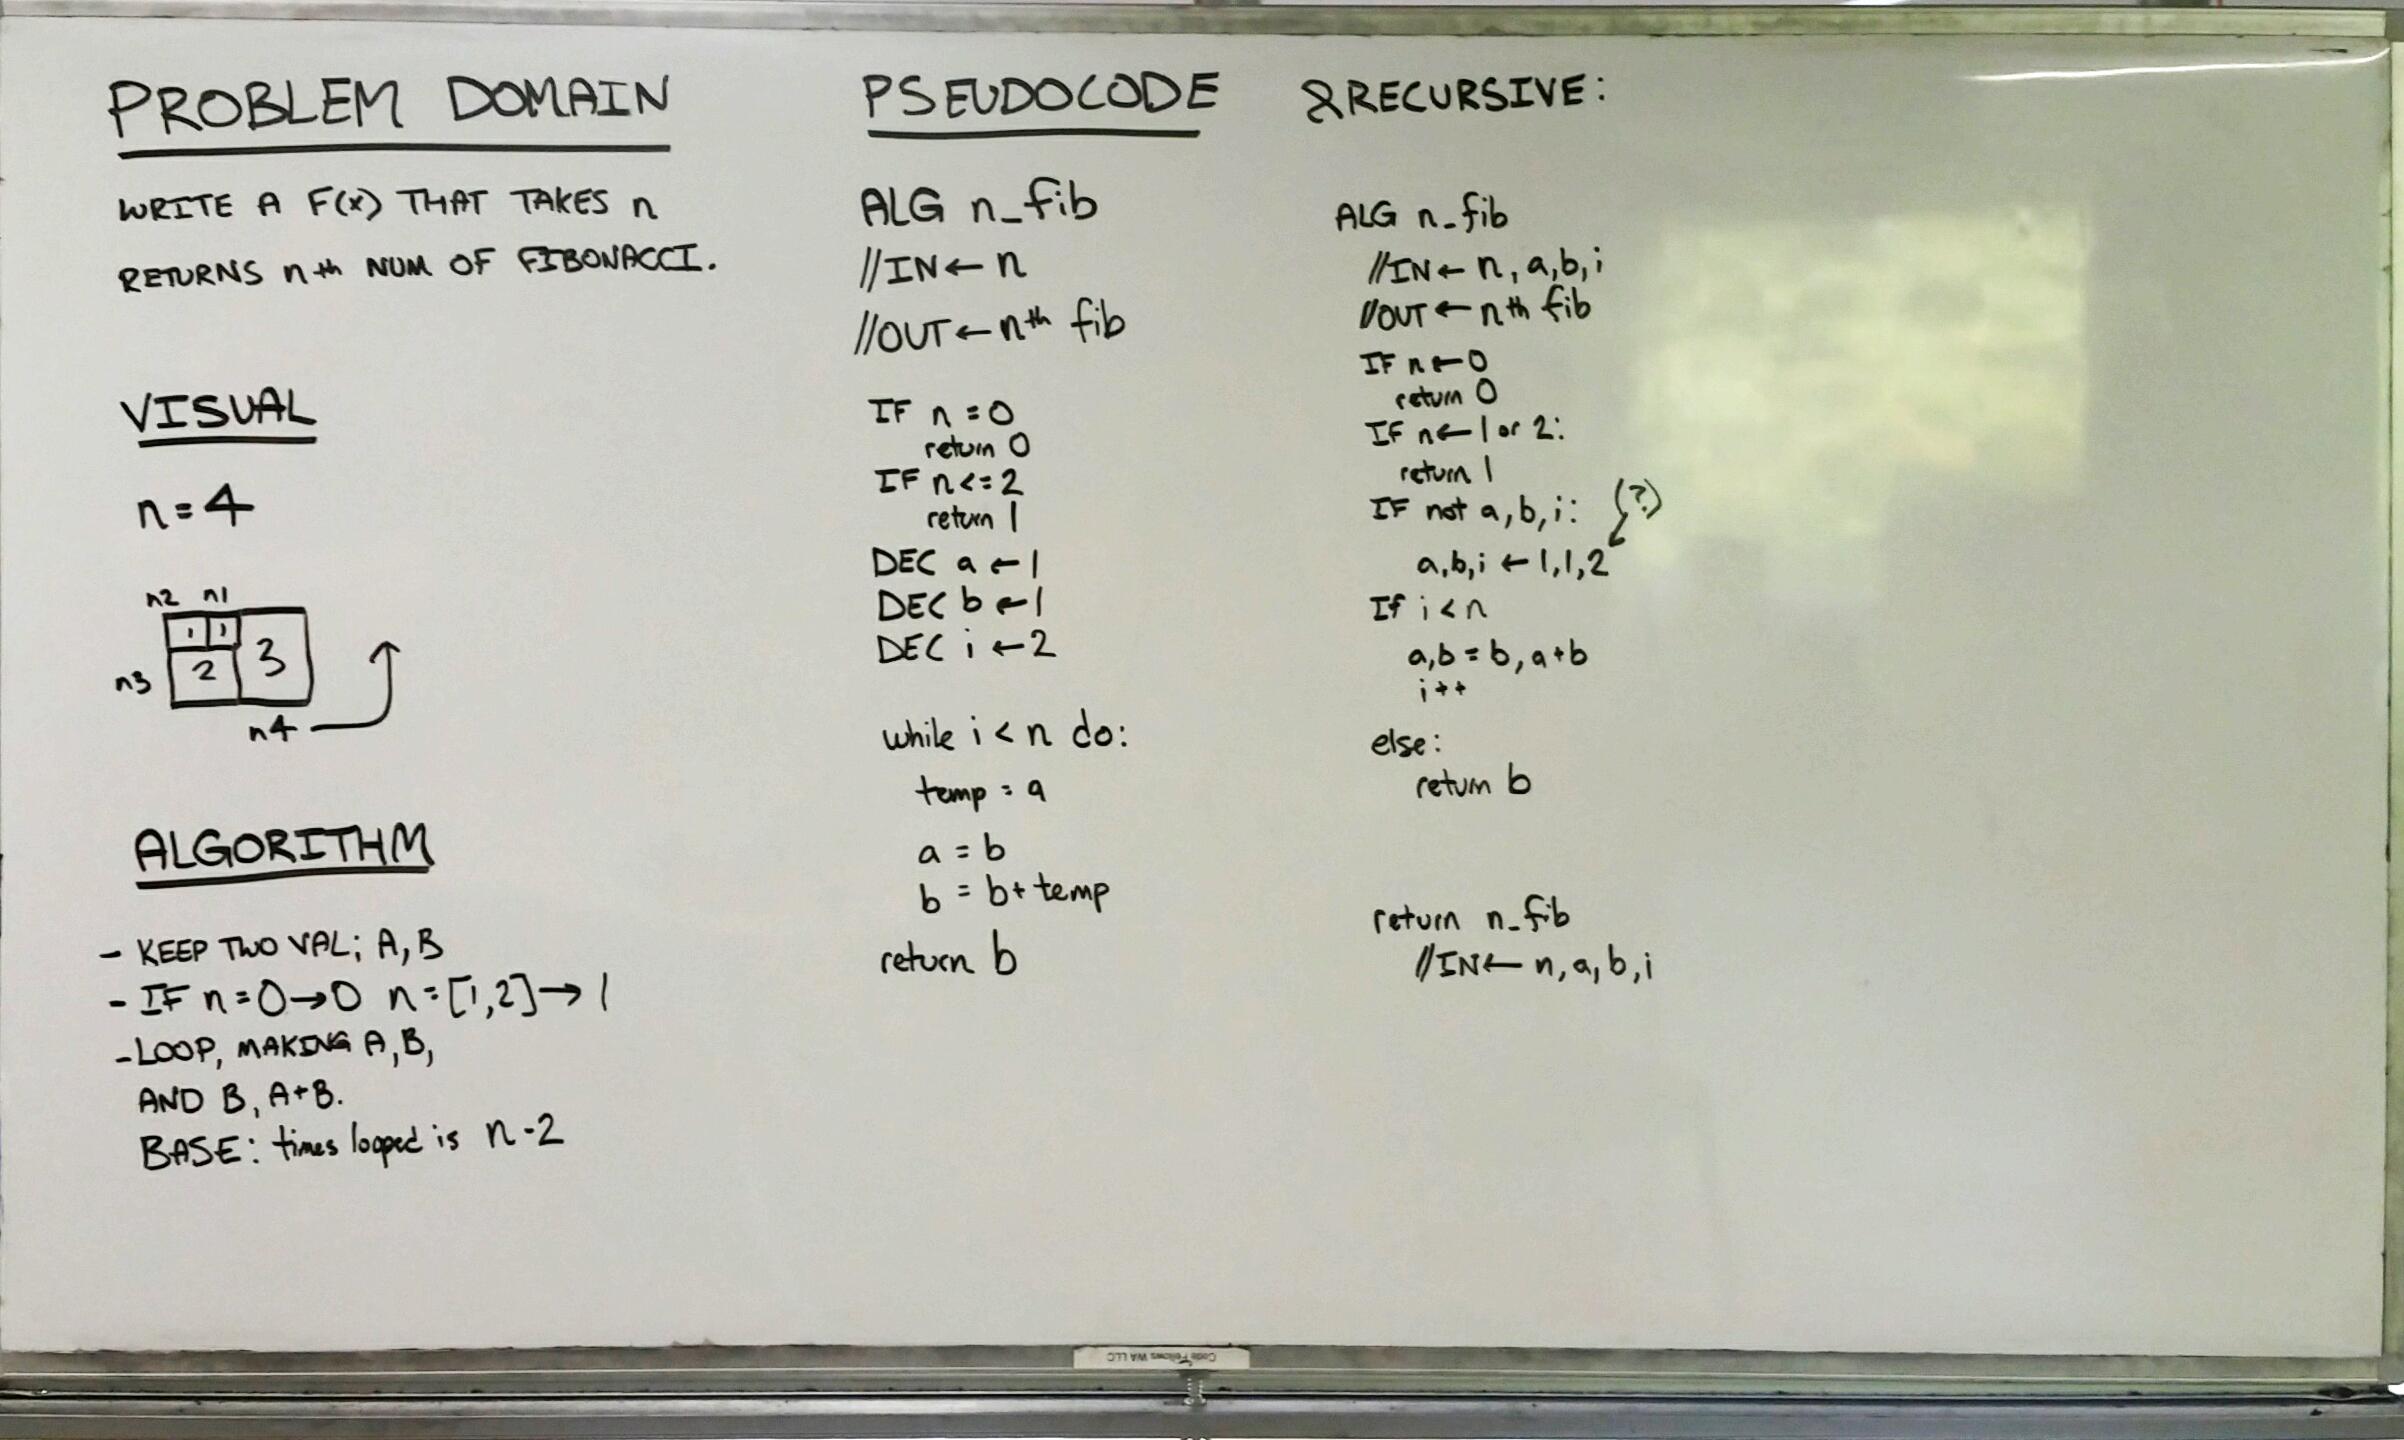 PROBLEM DOMAIN
WRITE A F(X) THAT TAKES n
RETURNS nth NUM OF FIBONACCI.
VISUAL
n=4
n2 n1
1 1 3
n3 2
n4
ALGORITHM
- KEEP TWO VAL; A, B
- IF n=0→0 n=[1,2]→1
- LOOP, MAKING A, B,
AND B, A+B.
BASE: times looped is n-2
PSEUDOCODE
ALG n_fib
//IN←n
//OUT←nth fib
IF n=0
return 0
IF n<=2
return 1
DEC a←1
DEC b←1
DEC i←2
while i<n do:
temp=a
a=b
b=b+temp
return b
&RECURSIVE:
ALG n_fib
//IN←n, a, b, i
//OUT←nth fib
IF n←0
return 0
IF n←1 or 2:
return 1
IF not a, b, i: (?)
a, b, i←1, 1, 2
If i<n
a, b=b, a+b
i++
else:
return b
return n_fib
//IN←n, a, b, i
Code Fellows WA LLC